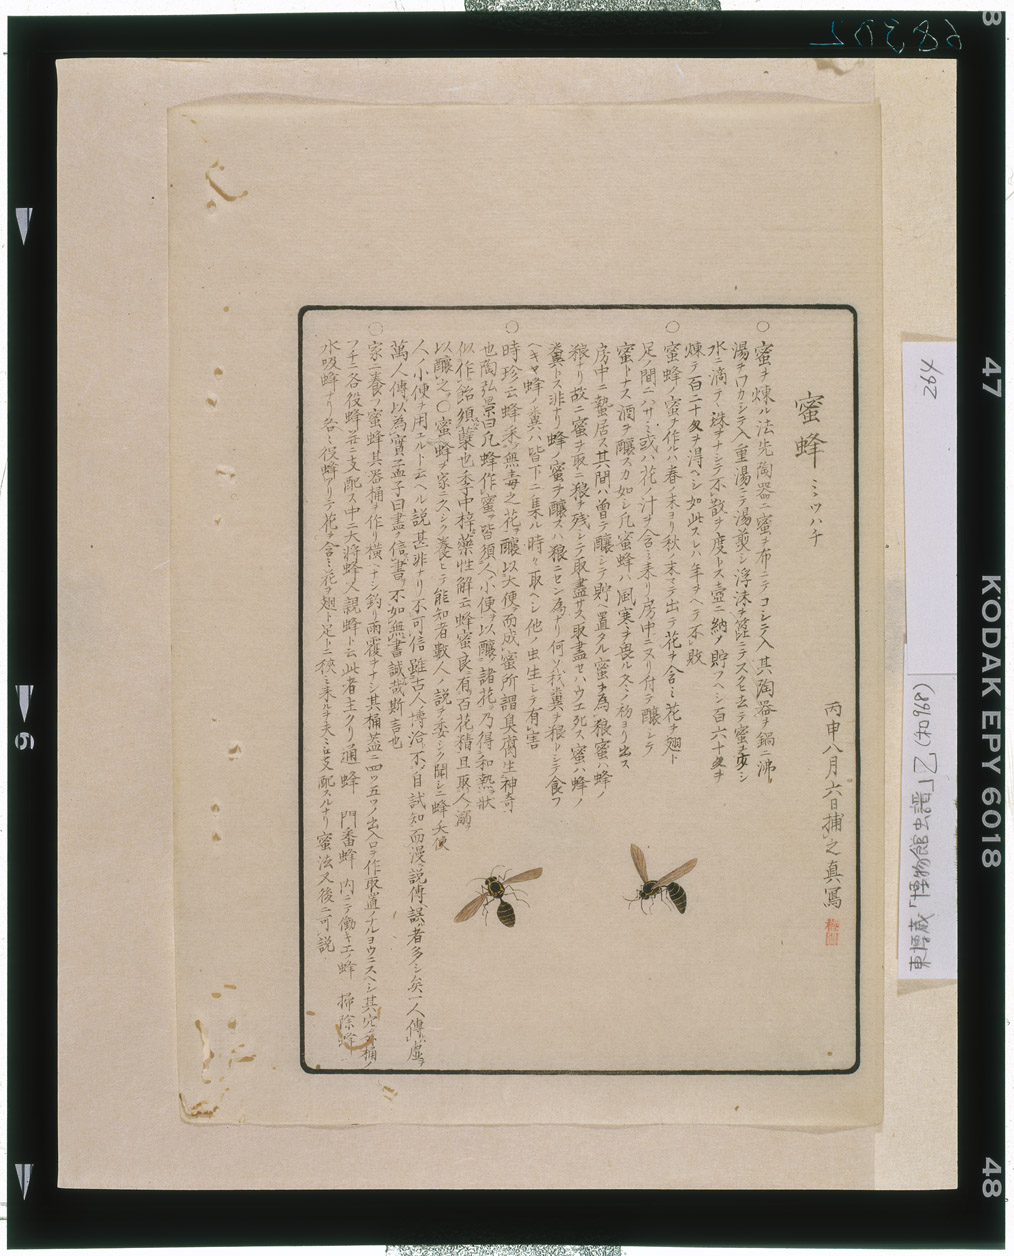 蜜蜂 ミツハチ
丙申八月六日捕之真寫
○蜜ヲ煉ル法先陶器ニ蜜ヲ布ニテコシテ入其陶器ヲ鍋ニ沸
湯ヲワカシテ入重湯ニテ湯煎シ浮沫ヲ篦ニテスクヒ去テ蜜ヲ少シ
水ニ滴テ珠ヲナシテ不散ヲ度トス壺ニ納メ貯フヘシ百六十匁ヲ
煉テ百二十匁ヲ得ヘシ如此スレハ年ヲヘテ不敗
○蜜蜂ノ蜜ヲ作ルハ春ノ末ヨリ秋ノ末マテ出テ花ヲ含ミ花ヲ翅ト
足ノ間ニハサミ或ハ花ノ汁ヲ含ミ来リ房中ニヌリ付ケ醸シテ
蜜トナス酒ヲ醸スカ如シ凡蜜蜂ハ風寒ヲ畏ル冬ノ初ヨリ出ス
房中ニ蟄居ス其間ハ曽テ醸シテ貯ヘ置タル蜜ヲ為粮蜜ハ蜂ノ
粮ナリ故ニ蜜ヲ取ニ粮ヲ残シテ取盡サス取盡セハウエ死ス蜜ハ蜂ノ
糞トス非ナリ蜂ノ蜜ヲ醸スハ粮ニセン為ナリ何ソ我糞ヲ粮トシテ食フ
ヘキヤ蜂ノ糞ハ皆下ニ集ル時々取ヘシ他ノ虫生シテ有害
○時珍云蜂采無毒之花醸以大便而成蜜所謂臭腐生神奇
也陶弘景曰凡蜂作蜜皆須人小便以醸諸花乃得和熟状
似作飴須蘖也季中梓藥性解云蜂蜜良有百花精且取人溺
以醸之○蜜蜂ヲ家ニ久シク養ヒテ能知者數人ノ説ヲ委シク聞シニ蜂大便
人ノ小便ヲ用エルト云ヘル説甚非ナリ不可信雖古人博洽不自試知而漫説傳誤者多シ矣一人傳虚
萬人傳以為實孟子曰盡信書不如無書誠哉斯言也
○家ニ養フ蜜蜂其器桶ヲ作リ横ヘナシ釣リ雨覆ヲナシ其桶蓋ニ四ツ五ツノ出入口ヲ作取置ノナルヨウニスヘシ其穴
フチニ各役蜂并ニ支配ス中ニ大将蜂又親蜂ト云此者主クリ通蜂 門番蜂 内ニテ働キエノ蜂 掃除蜂
水吸蜂ナリ各ミ役蜂アリテ花ヲ含ミ花ヲ翅ト足トニ狹ミ来ルヲ夫々ミ支配スルナリ蜜法又後ニ可説
264
東博蔵「博物館虫譜」乙(和968)
68302
47
KODAK EPY 6018
48
6
8